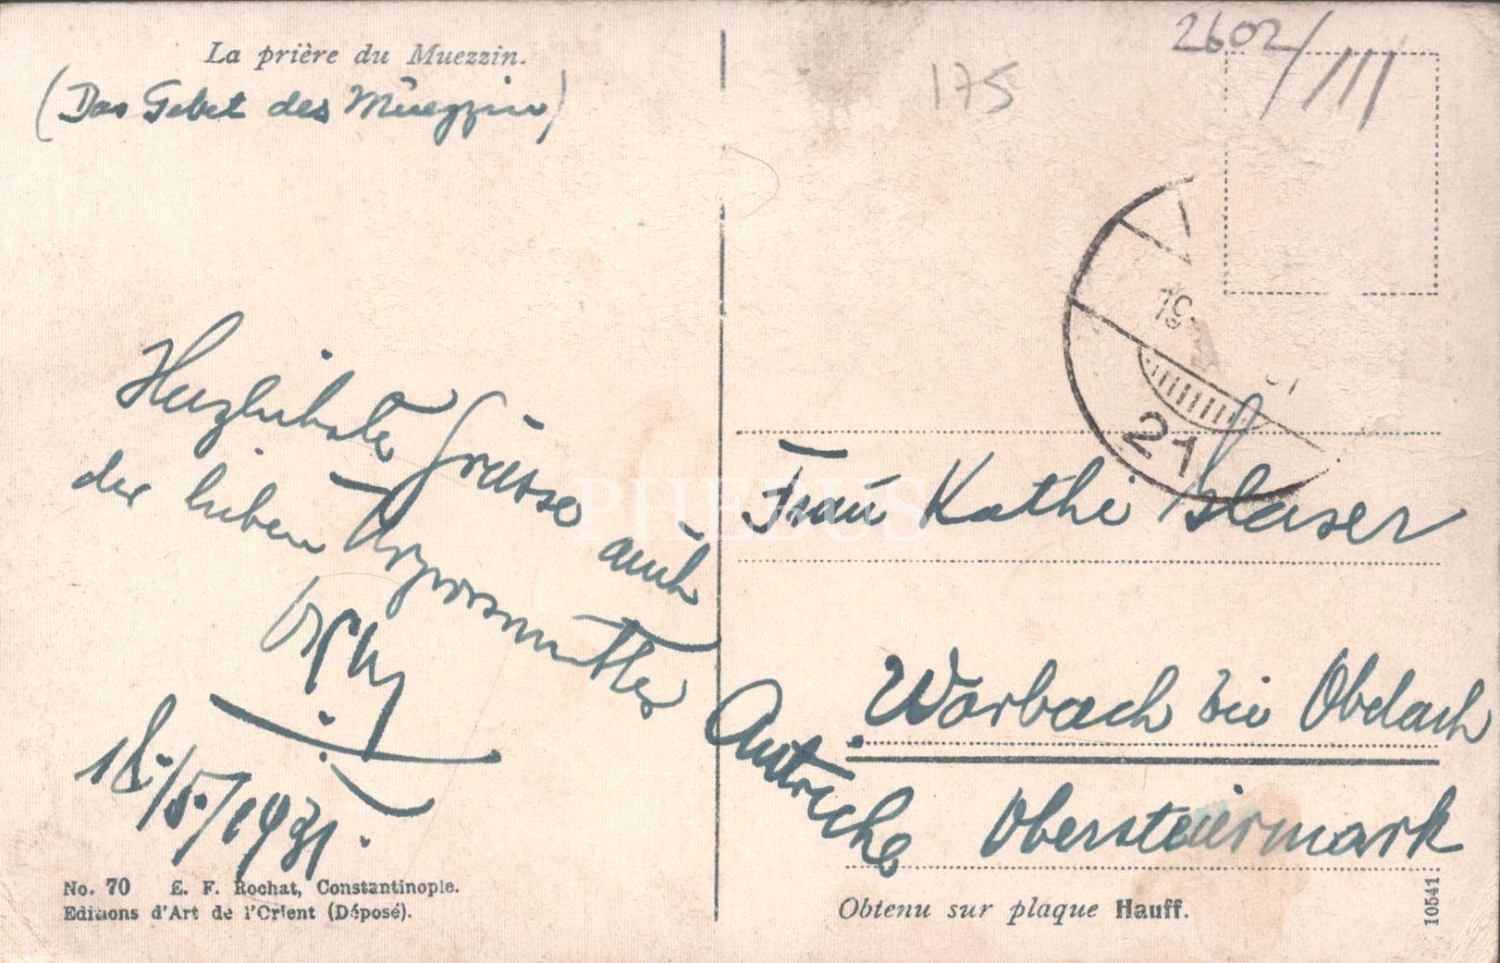 La prière du Muezzin.
(Das Gebet des Muezzin)
2602/III
175
19
21
Herzlichste Grüsse auch
der lieben Urgrossmutter
18./5./1931.
Frau Kathi Glaser
Warbach bei Obdach
Obersteiermark
Autriche
PHEBUS
No. 70 E. F. Rochat, Constantinople.
Editions d'Art de l'Orient (Déposé).
Obtenu sur plaque Hauff.
10541